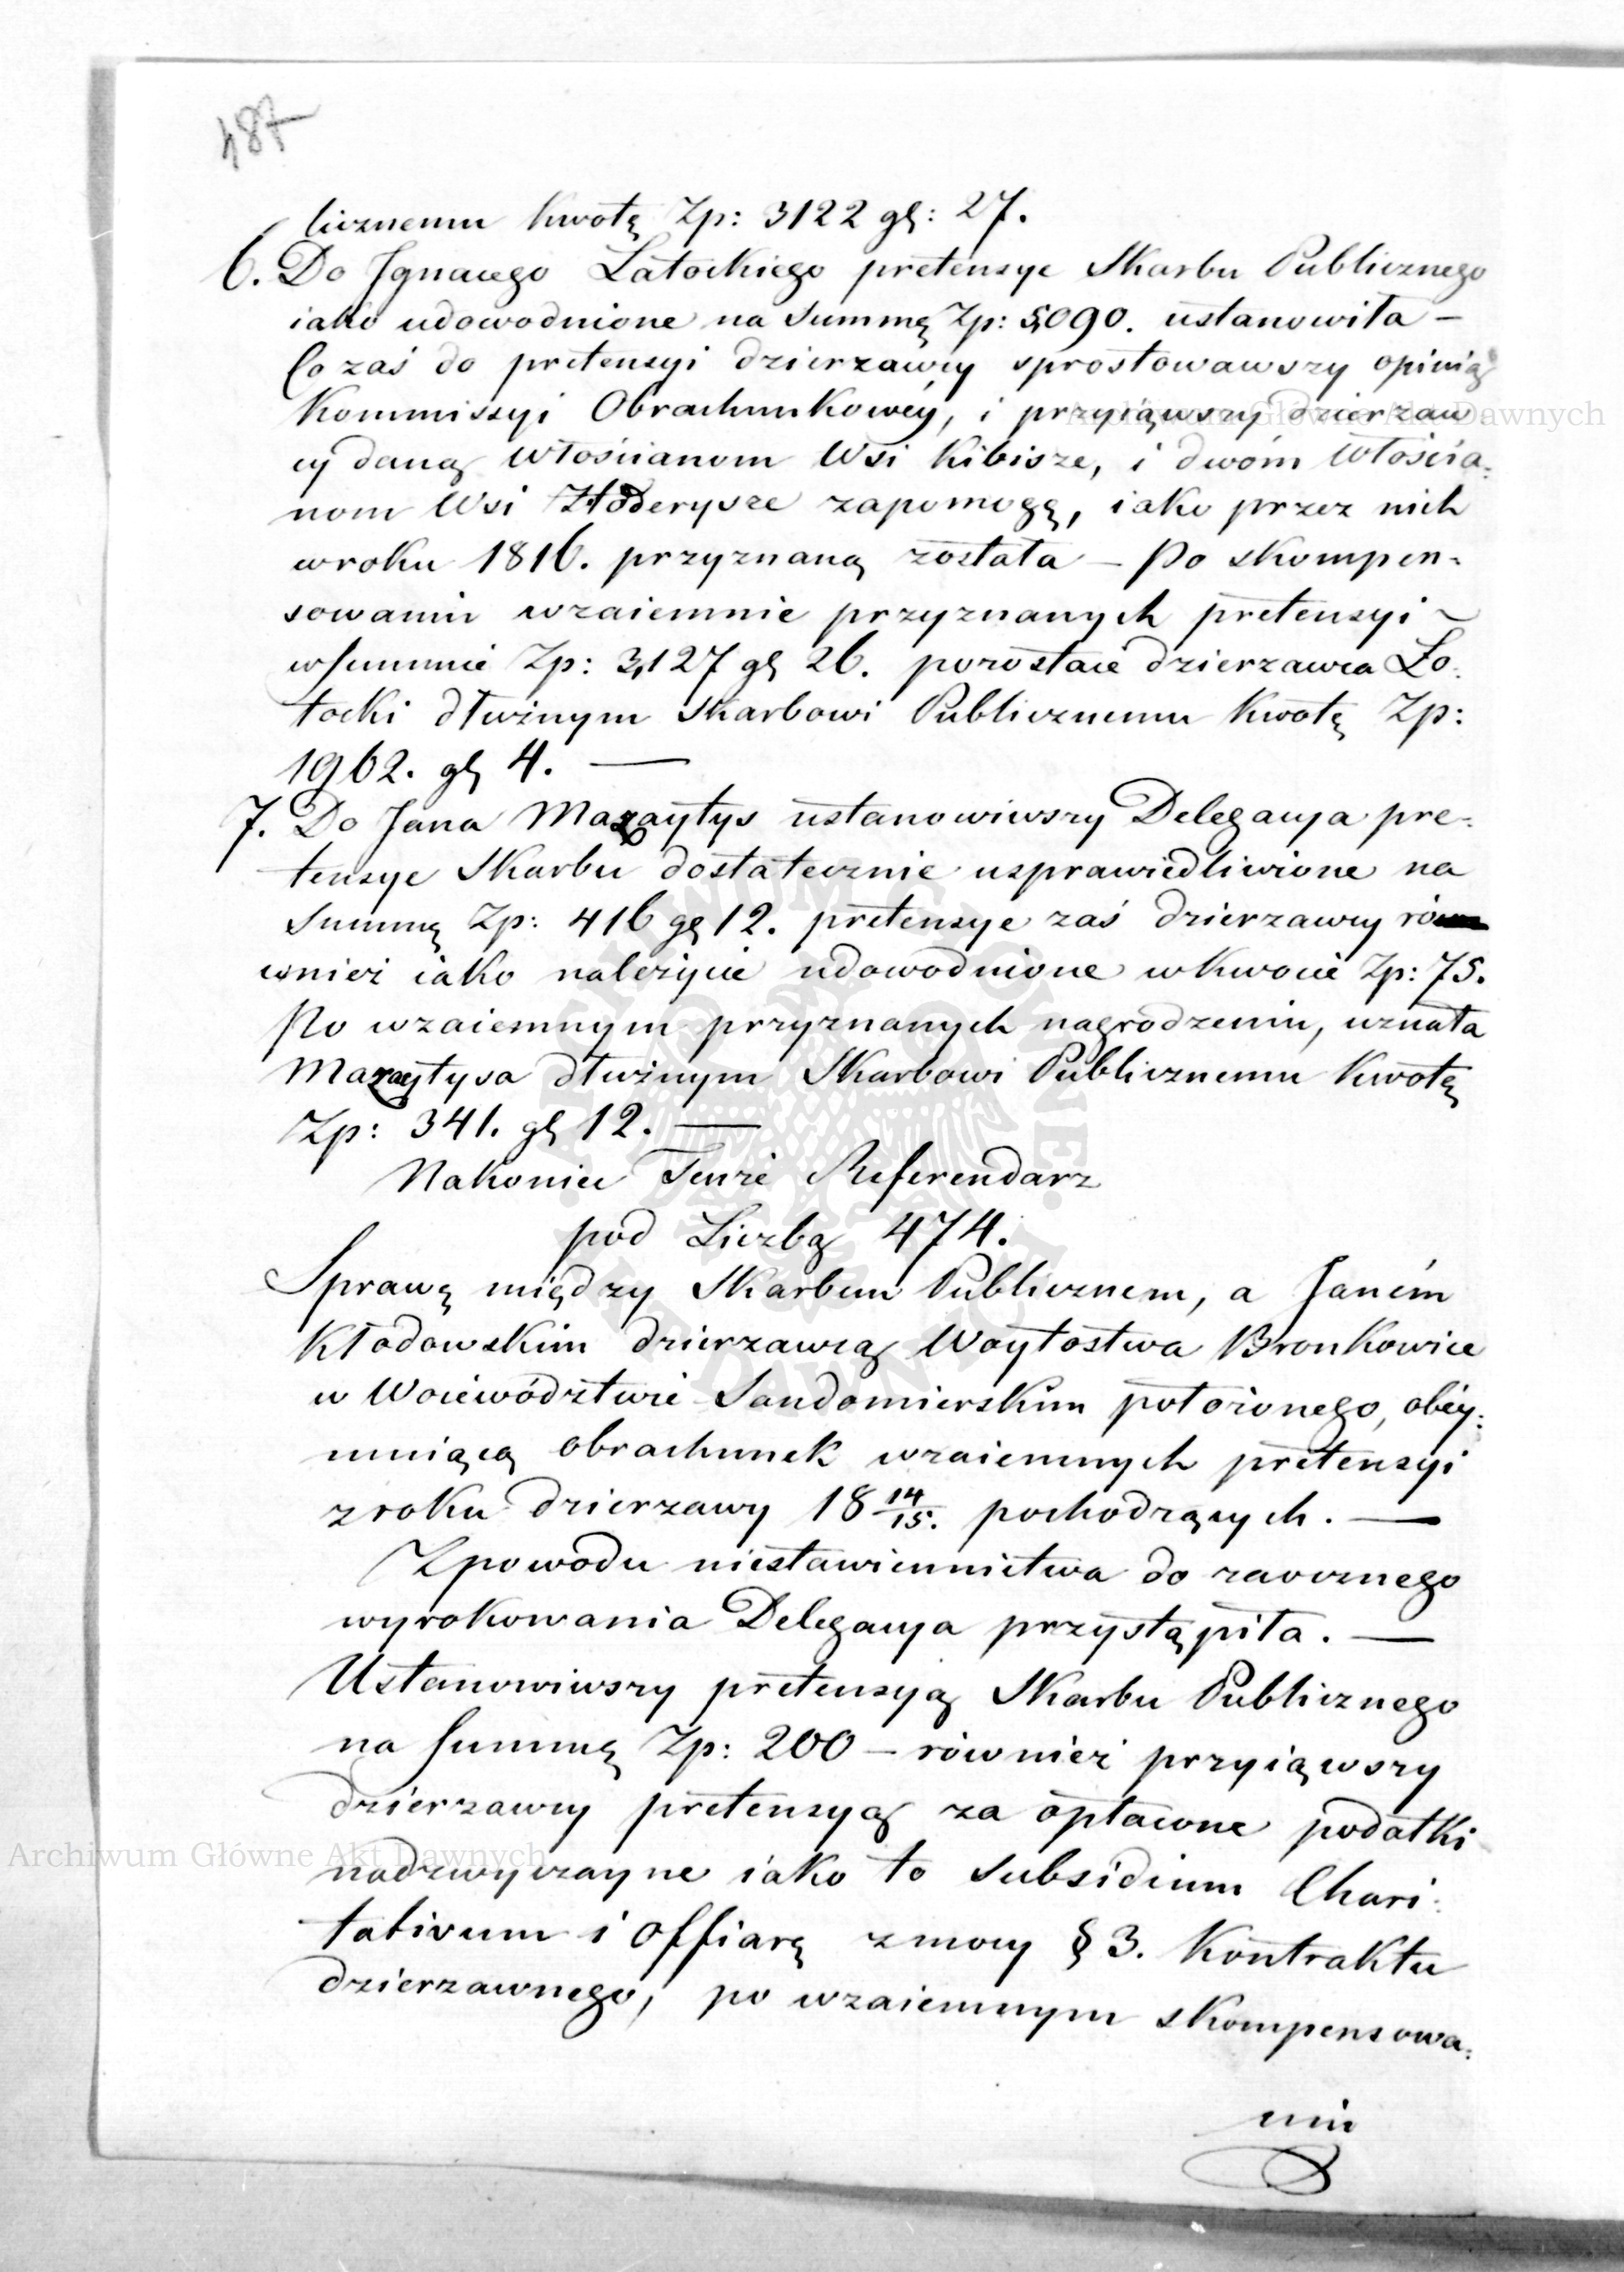 487
licznemu kwotę Zp: 3122 gl: 27.
6. Do Jgnacego Latockiego pretensye Skarbu Publicznego
iako udowodnione na Summę Zp: 5,090. ustanowiła –
Co zaś do pretensyi dzierzawcy sprostowawszy opinią
Kommissyi Obrachunkowéy, i przyiąwszy dzierzaw
cy daną Włościanom Wsi Kibisze, i dwóm Włościa=
nom Wsi zapomogę, iako przez nich
w roku 1816. przyznaną została – Po skompen=
sowaniu wzaiemnie przyznanych pretensyi ~
w Summie Zp: 3,127 gl 26. pozostaie dzierzawca Ło=
tocki dłużnym Skarbowi Publicznemu kwotę Zp:
1962. gl 4. —
7. Do Jana Mazaytys ustanowiwszy Delegacya pre=
tensye Skarbu dostatecznie usprawiedliwione na
Summę Zp: 416 gl 12. pretensye zaś dzierzawcy ró
wnież iako należycie udowodnione w kwocie Zp: 75.
Po wzaiemnym przyznanych nagrodzeniu, uznała
Mazaytysa dłużnym Skarbowi Publicznemu kwotę
Zp: 341. gl 12. —
Nakoniec Tenże Referendarz
pod Liczbą 474.
Sprawę między Skarbem Publicznem, a Janém
Kłodowskim dzierzawcą Woytostwa Bronkowice
w Woiewództwie Sandomierskim położonego, obéy=
muiącą obrachunek wzaiemnych pretensyi
z roku dzierzawy 18 14/15. pochodzących. —
Z powodu niestawiennictwa do zaocznego
wyrokowania Delegacya przystąpiła. —
Ustanowiwszy pretensyą Skarbu Publicznego
na Summę Zp: 200 – również przyiąwszy
dzierzawcy pretensyą za opłacone podatki
nadzwyczayne iako to Subsidium Chari=
tativum i Offiarę z mocy § 3. Kontraktu
dzierzawnego, po wzaiemnym skompensowa=
niu
Archiwum Główne Akt Dawnych
Archiwum Główne Akt Dawnych